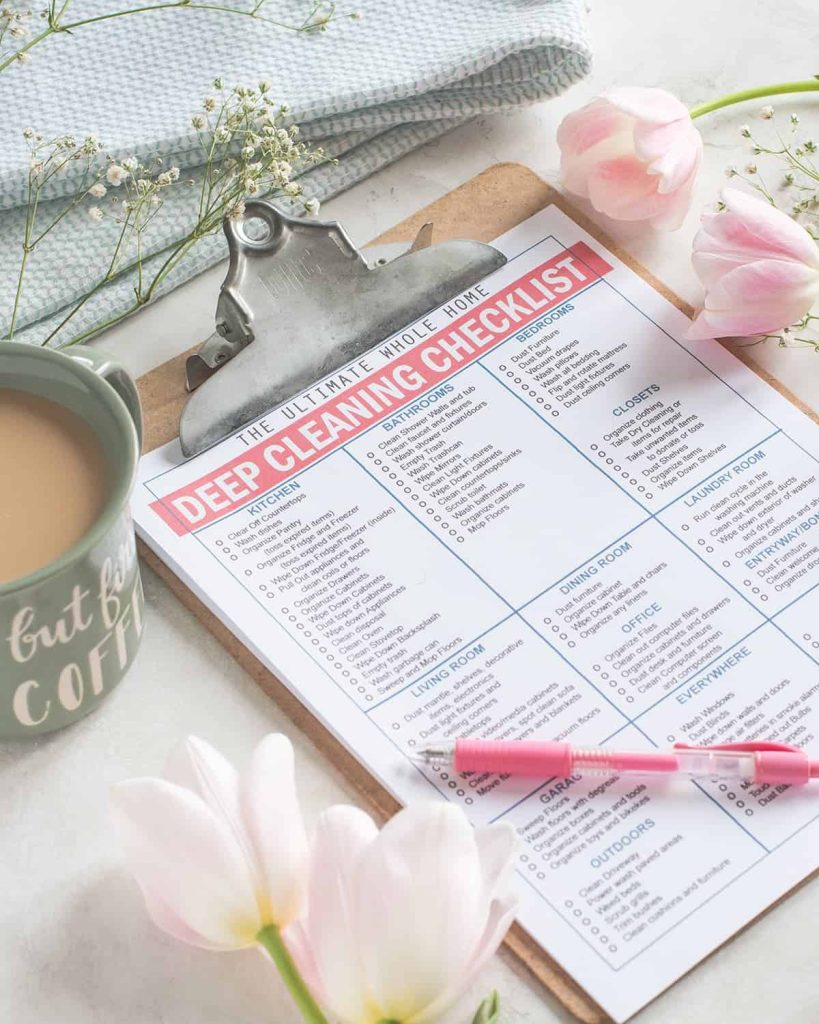 THE ULTIMATE WHOLE HOME
DEEP CLEANING CHECKLIST
KITCHEN
Clear Off Countertops
Wash dishes
Organize Pantry
(toss expired items)
Organize Fridge and Freezer
(toss expired items)
Wipe Down Fridge/Freezer (inside)
Pull Out appliances and
clean coils or floors
Organize Drawers
Organize Cabinets
Wipe Down Cabinets
Dust tops of cabinets
Wipe down Appliances
Clean disposal
Clean Oven
Clean Stovetop
Wipe Down Backsplash
Empty trash
Wash garbage can
Sweep and Mop Floors
BATHROOMS
Clean Shower Walls and tub
Clean faucet and fixtures
Wash shower curtain/doors
Empty Trash
Wash Trashcan
Wipe Mirrors
Clean Light Fixtures
Wipe Down cabinets
Clean countertops/sinks
Scrub toilet
Wash bathmats
Organize cabinets
Mop Floors
BEDROOMS
Dust Furniture
Dust Bed
Vacuum drapes
Wash pillows
Wash all bedding
Flip and rotate mattress
Dust light fixtures
Dust ceiling corners
CLOSETS
Organize clothing
Take Dry Cleaning or
items for repair
Take unwanted items
to donate or toss
Dust Shelves
Organize Items
Wipe Down Shelves
LAUNDRY ROOM
Run clean cycle in the
washing machine
Clean out vents and ducts
Wipe down exterior of washer
and dryer
Organize cabinets and
ENTRYWAY/
Dust Furniture
Clean welcome
Organize
DINING ROOM
Dust furniture
Organize cabinet
Wipe Down Table and chairs
Organize any linens
OFFICE
Organize Files
Clean out computer files
Organize cabinets and drawers
Dust desk and furniture
Clean Computer screen
and components
LIVING ROOM
Dust mantle, shelves, decorative
items, electronics
Dust light fixtures and
video/media cabinets
spot clean sofa
and blankets
floors
Move
EVERYWHERE
Wash Windows
Dust Blinds
Wipe down walls and doors
air filters
batteries in smoke
out Bulbs
Dust
Sweep Floors
Wash floors with degreaser
Organize boxes
Organize cabinets and tools
Organize toys and bikes
OUTDOORS
Clean Driveway
Power wash paved areas
Weed beds
Scrub grills
Trim bushes
Clean cushions and furniture
but